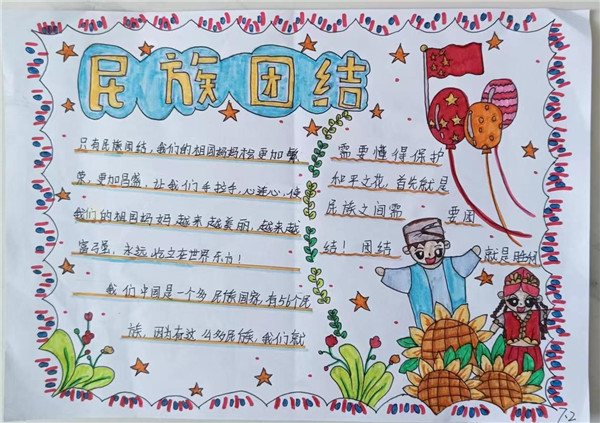 民族团结
只有民族团结，我们的祖国妈妈才会更加繁
荣，更加昌盛，让我们手拉手，心连心，使
我们的祖国妈妈越来越美丽，越来越
富强，永远屹立在世界东方！
我们中国是一个多民族国家，有56个民
族，因为有这么多民族，我们就
需要懂得保护
和平之花，首先就是
民族之间需 要团
结！团结 就是
7.2